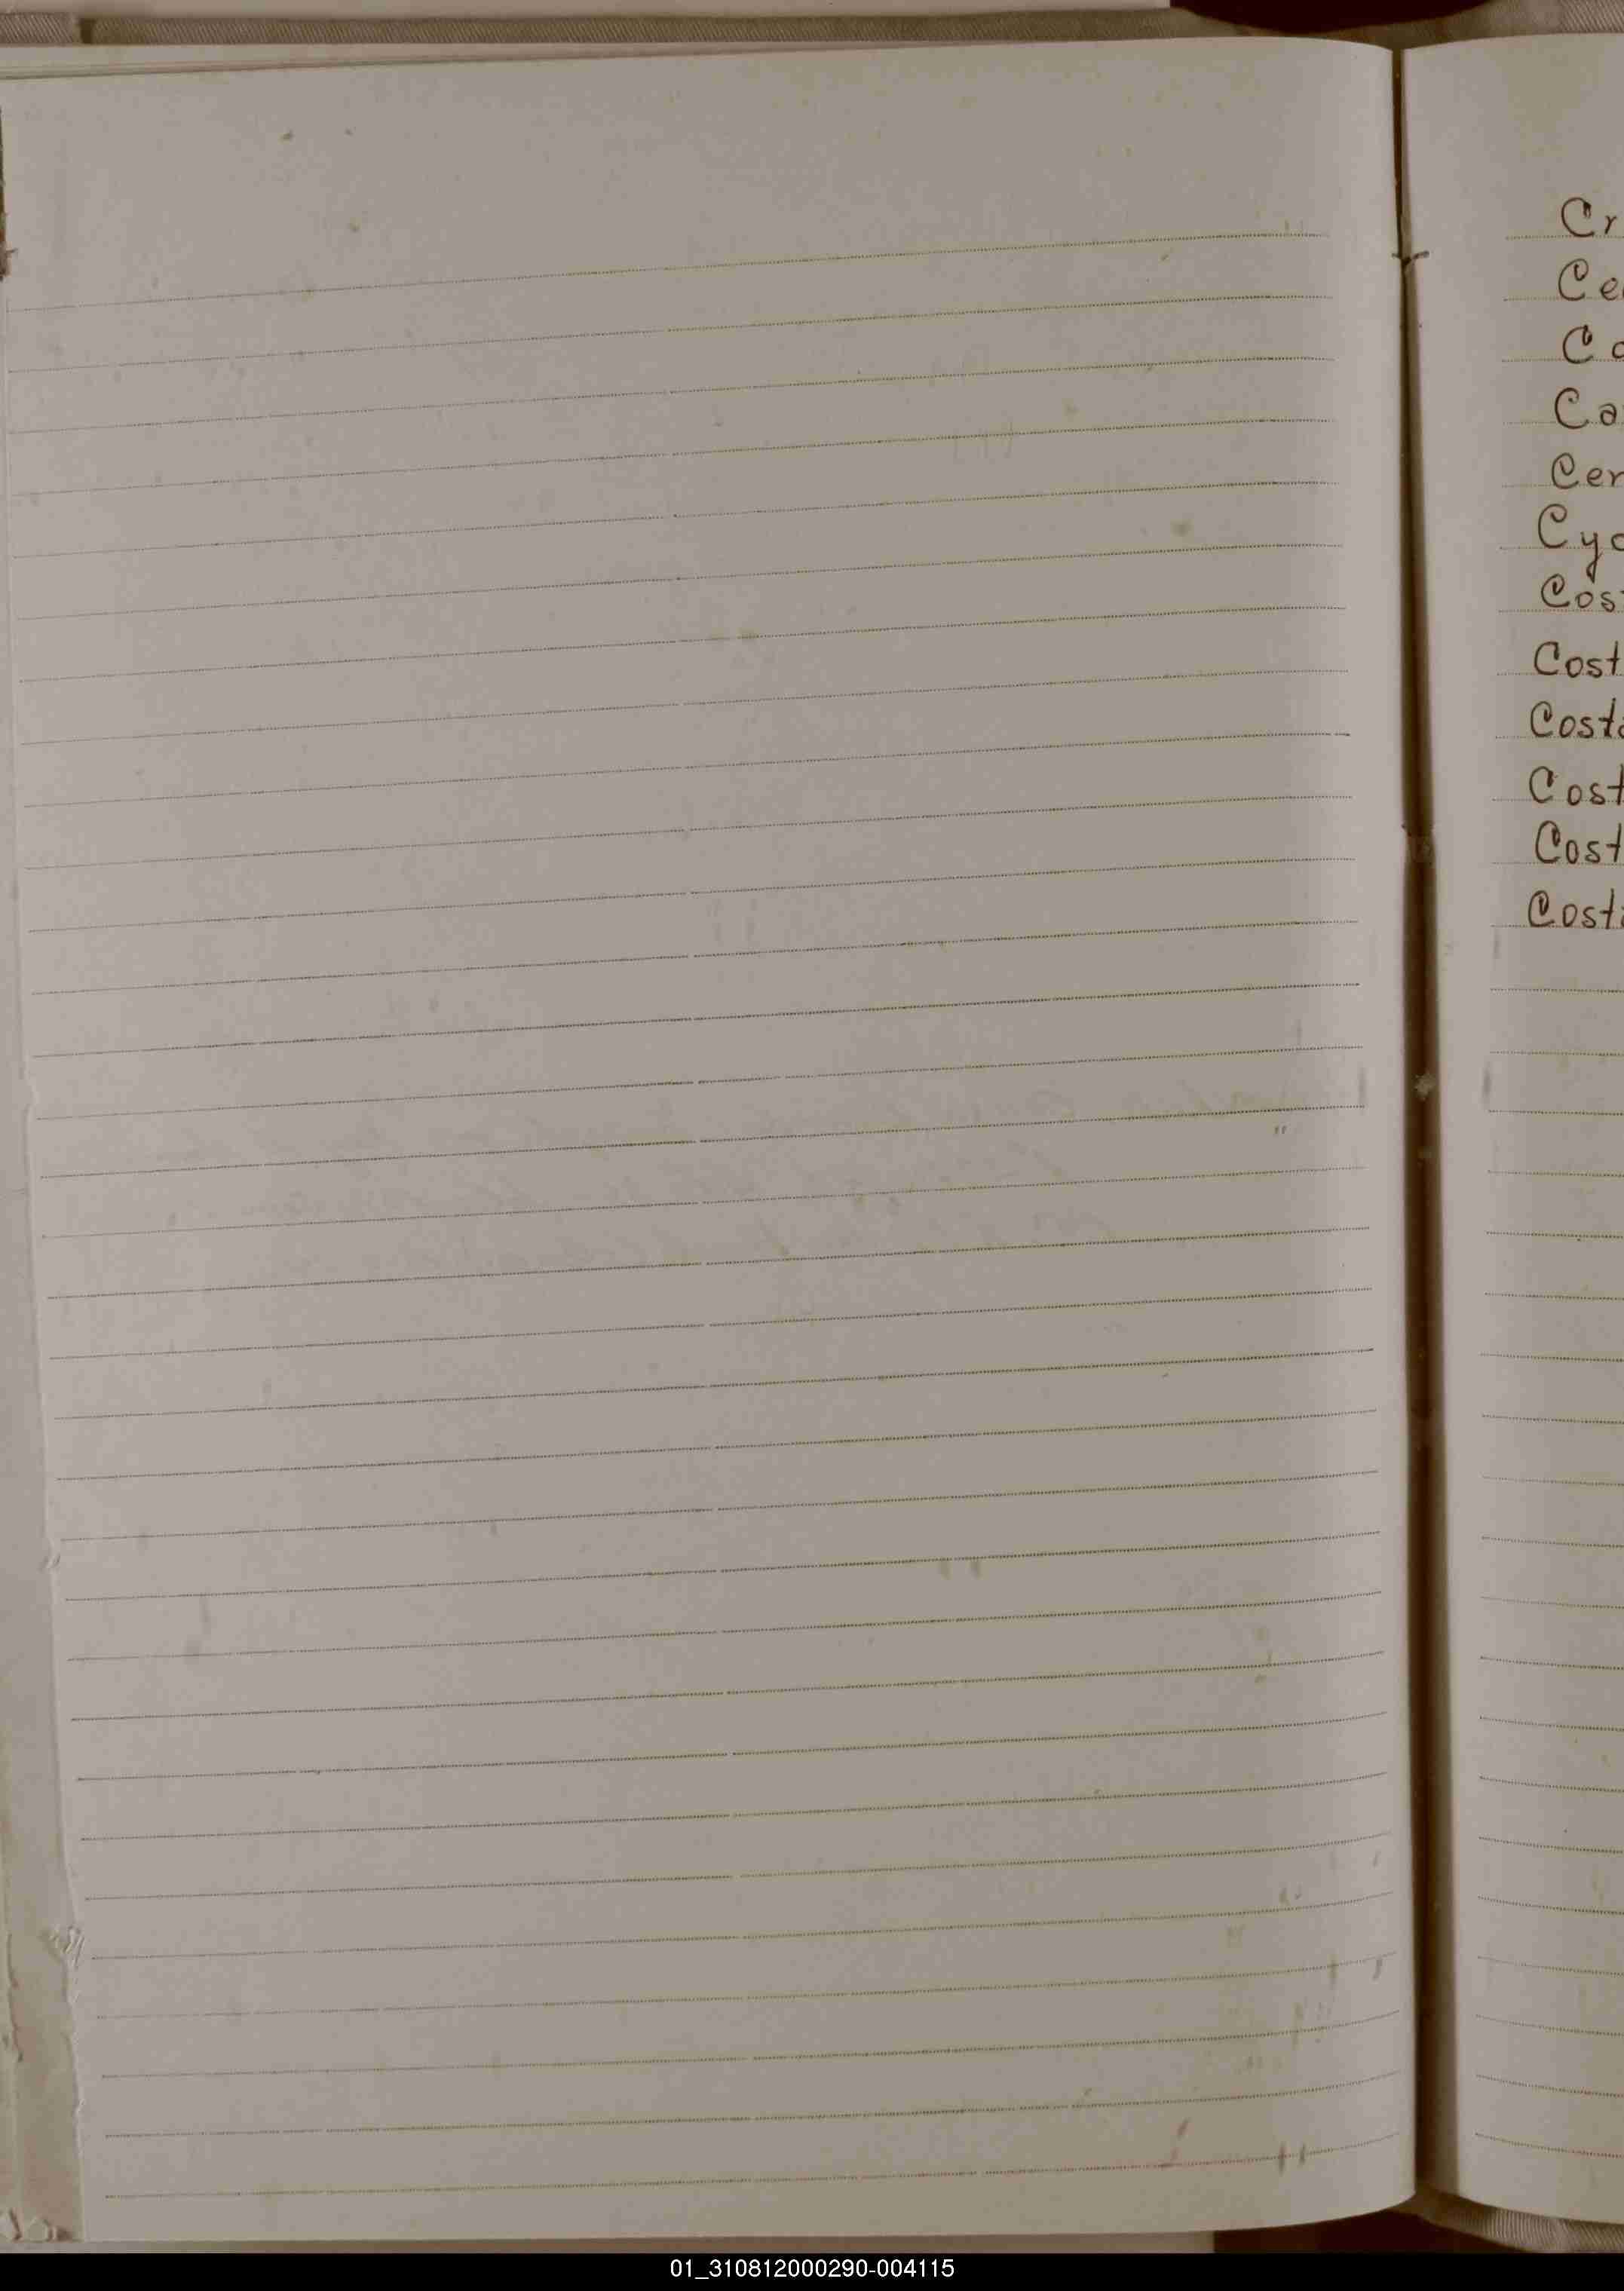 Cr
Ce
Co
Ca
Cer
Cyc
Cos
Cost
Costa
Cost
Cost
Costi
01_310812000290-004115